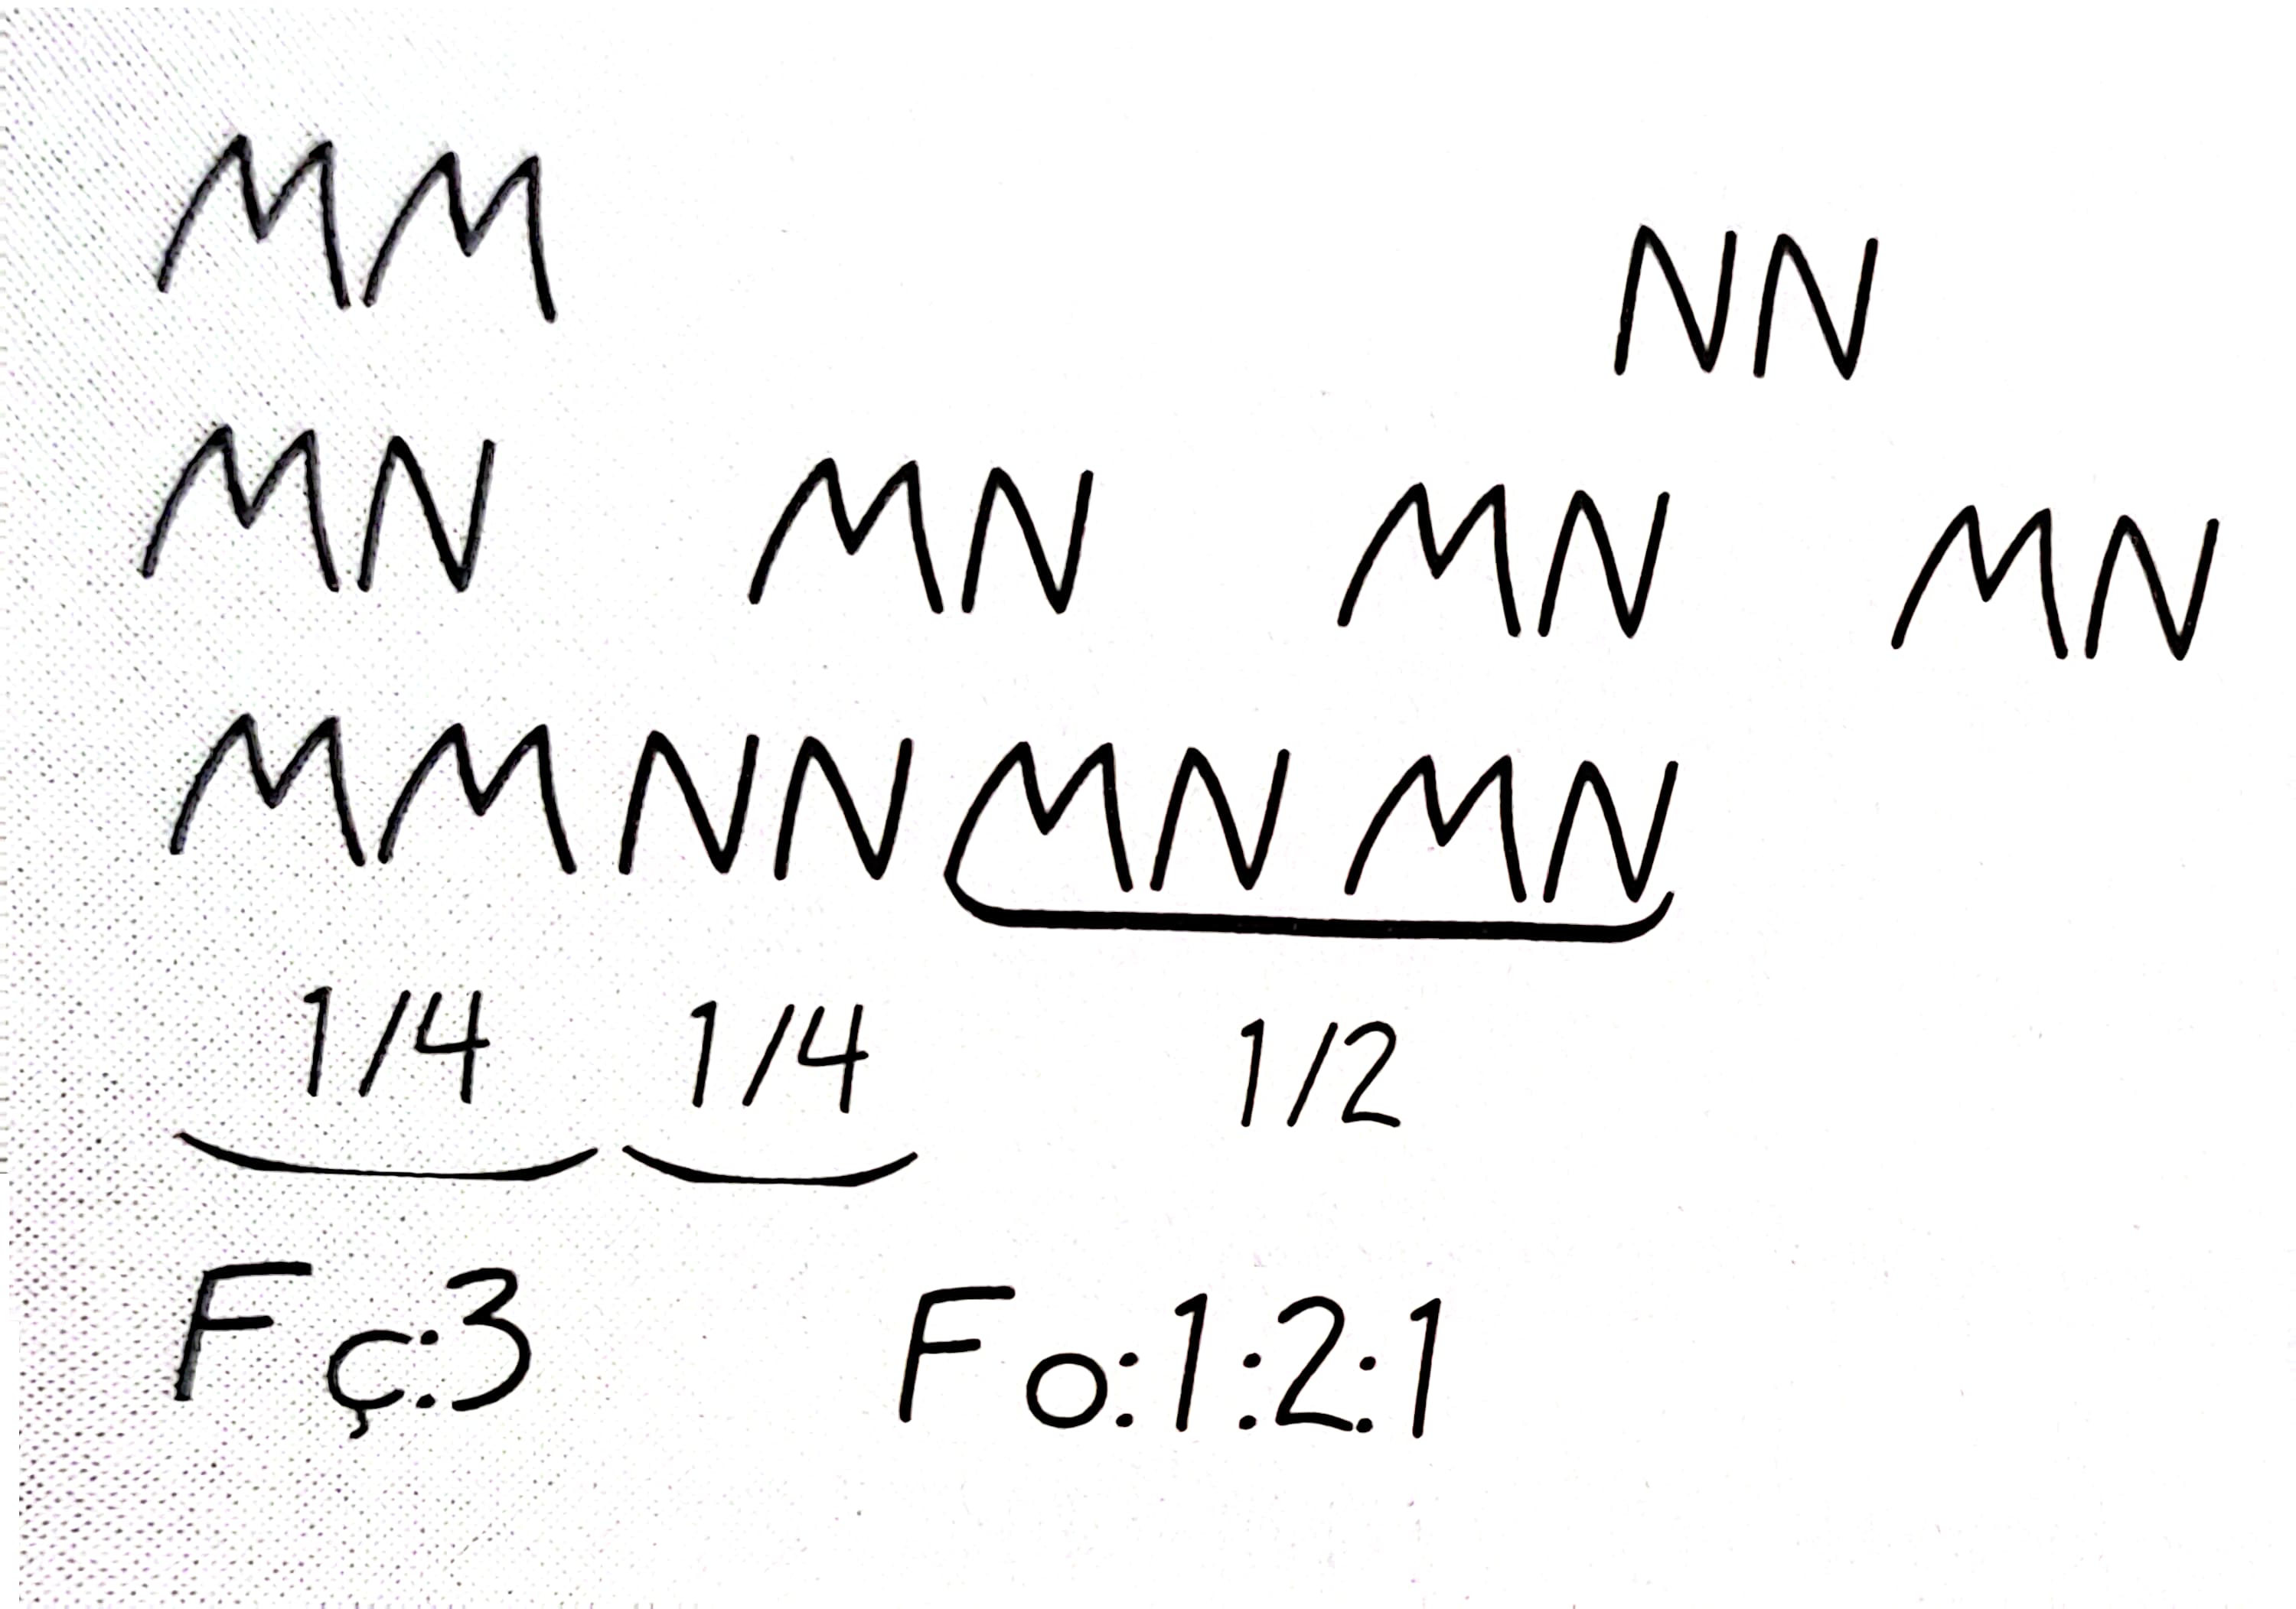 MM NN
MN MN MN MN
MM NN MN MN
1/4 1/4 1/2
Fç:3 Fo:1:2:1